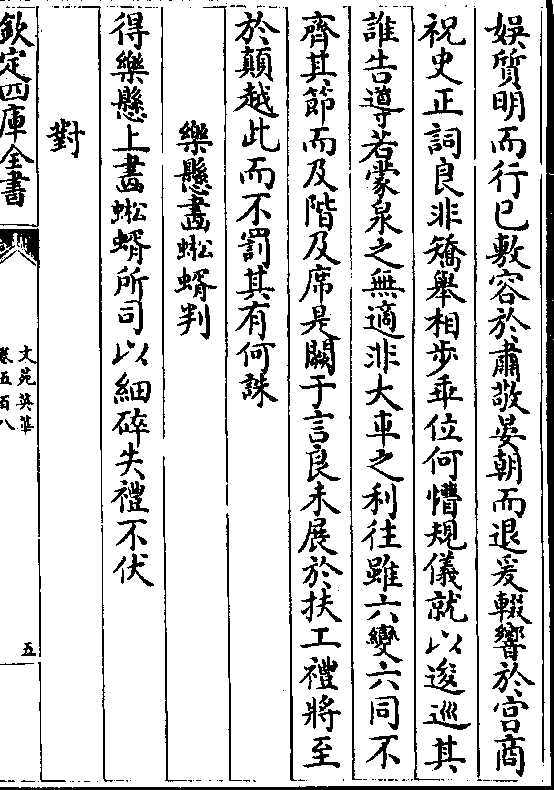 娯質明而行已敷容於肅敬晏朝而退爰輟響於宫商
祝史正詞良非矯舉相步乖位何懵規儀就以逡巡其
誰告導若蒙泉之無適非大車之利往雖六變六同不
齊其節而及階及席是闕于言良未展於扶工禮將至
於顛越此而不罰其有何誅
樂懸畫蜙蝑判
得樂懸上畫蜙蝑所司以細碎失禮不伏
對
欽定四庫全書
文苑英華
卷五百八
五